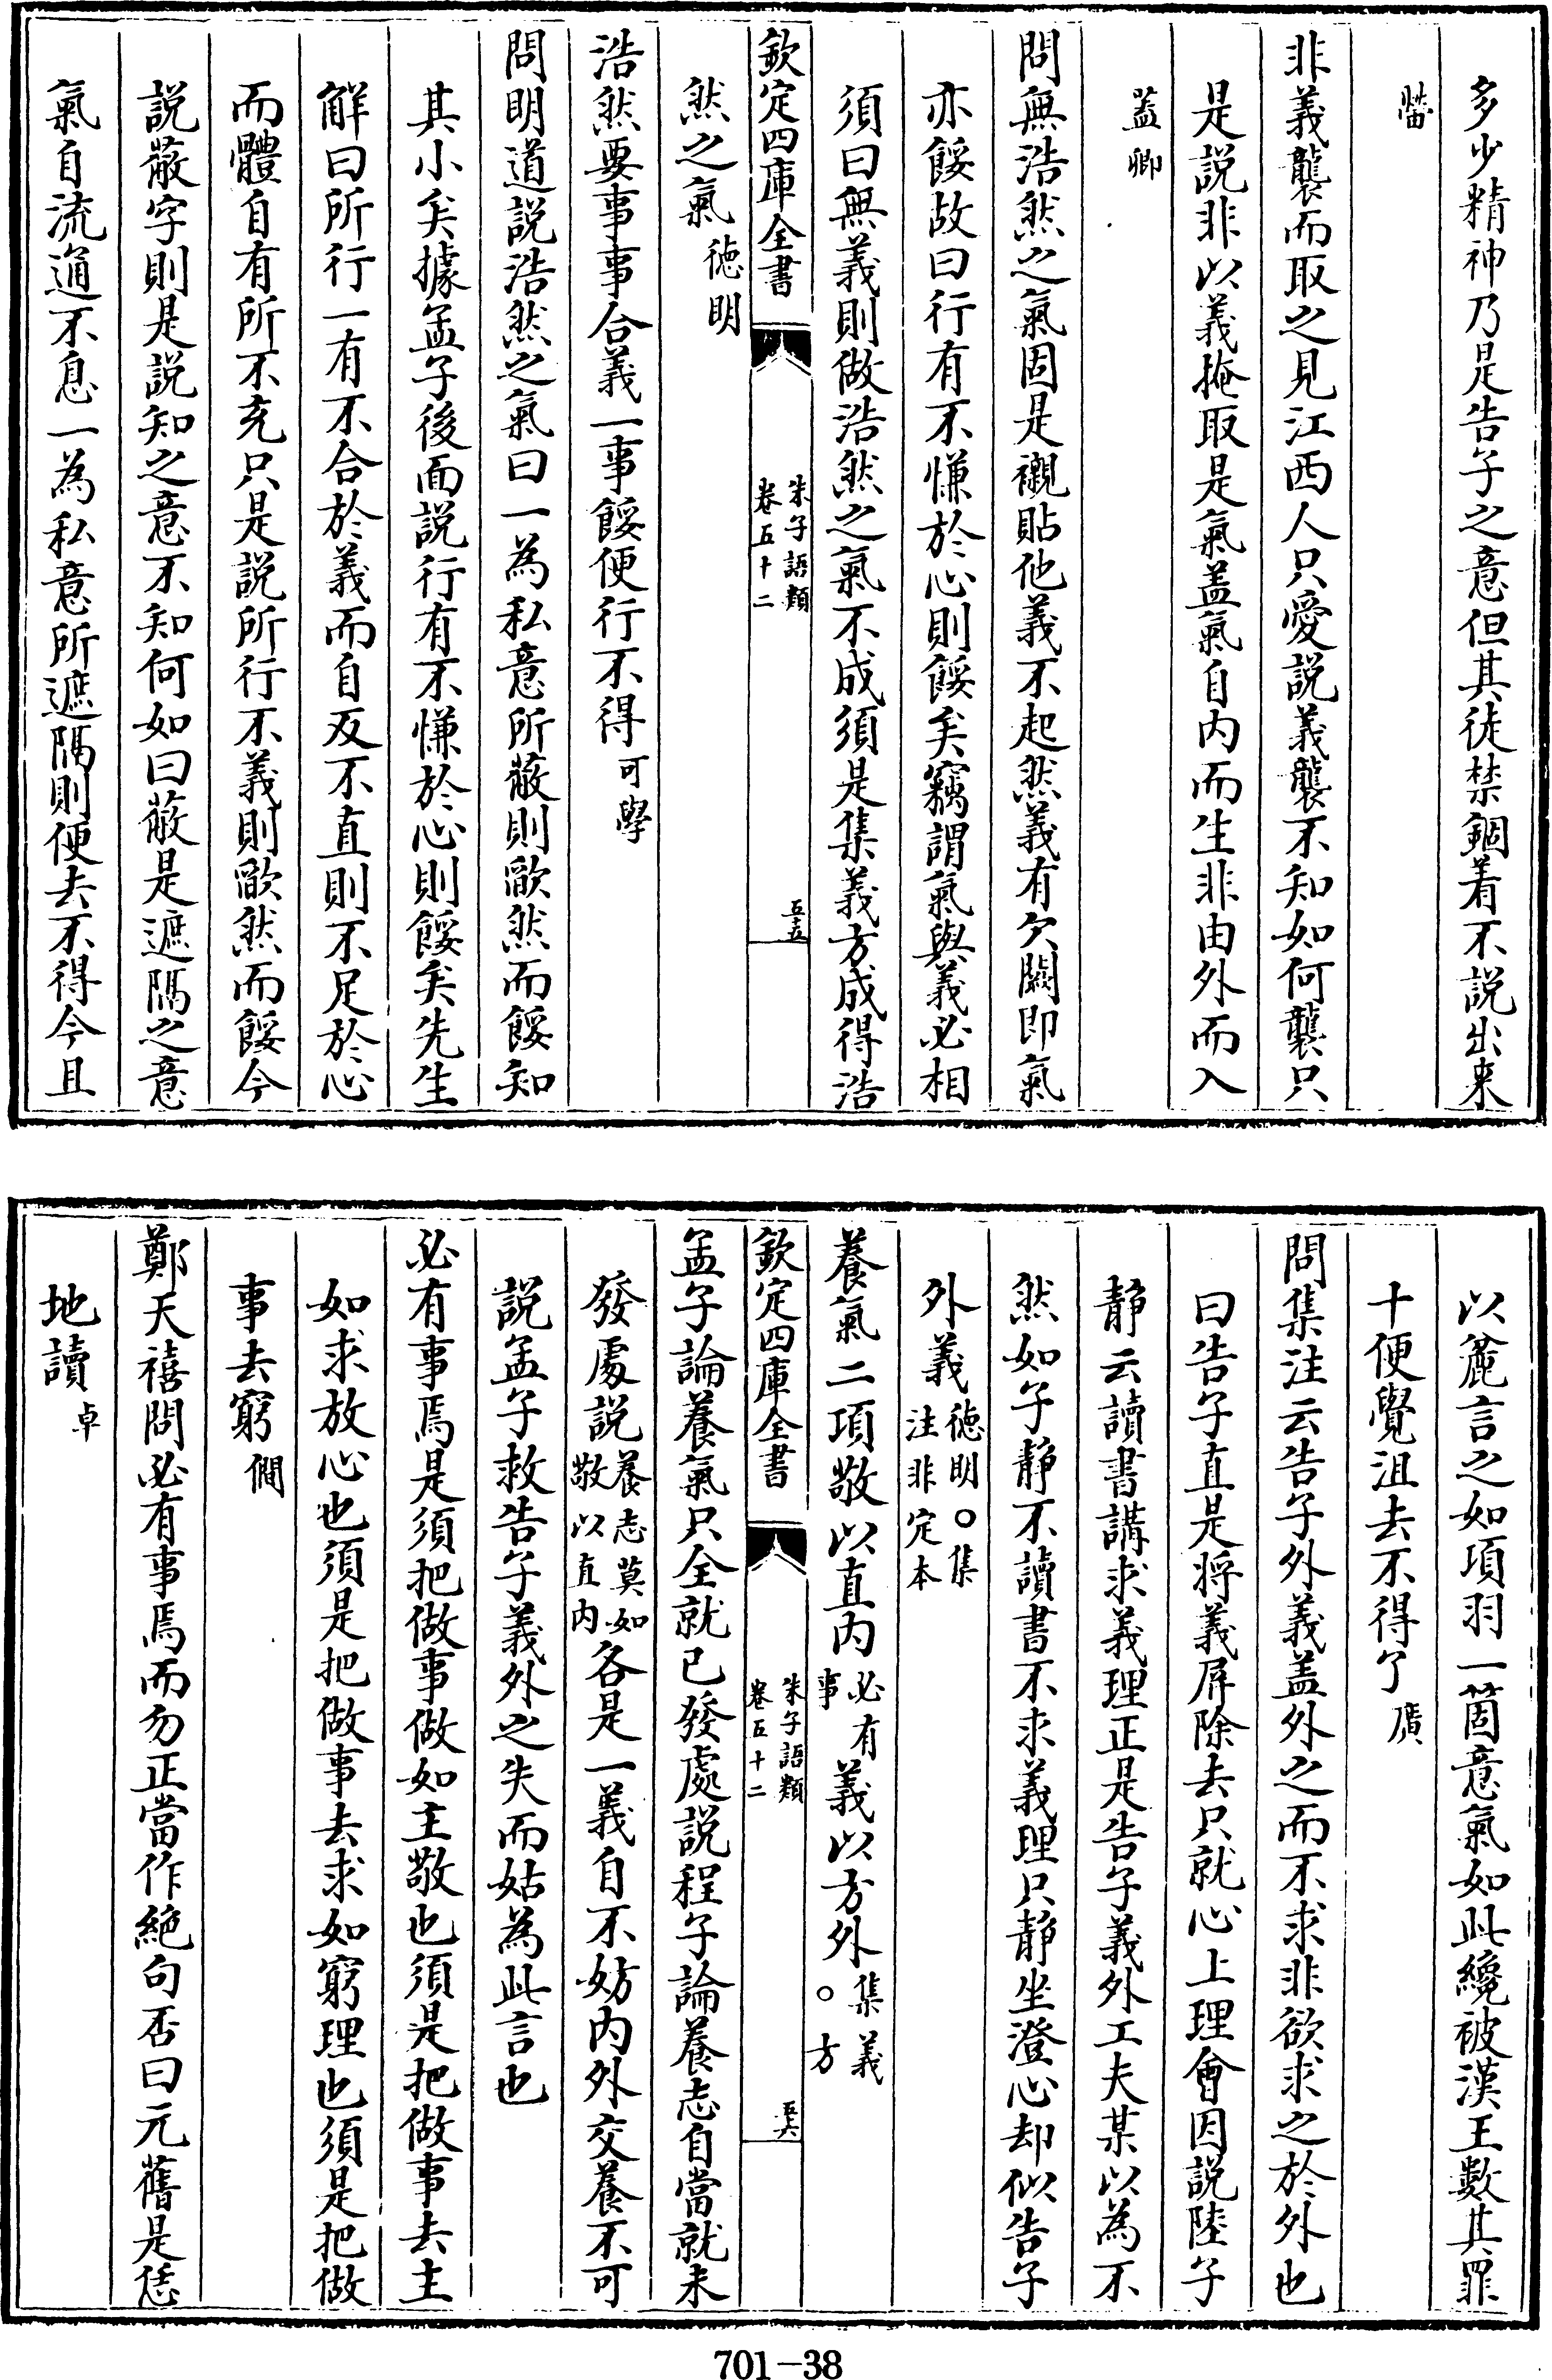 多少精神乃是告子之意但其徒禁錮着不說出来
㽦
非義襲而取之見江西人只愛說義襲不知如何襲只
是説非以義掩取是氣盖氣自内而生非由外而入
盖卿
問無浩然之氣固是襯貼他義不起然義有欠闕即氣
亦餒故曰行有不慊於心則餒矣竊謂氣與義必相
須曰無義則做浩然之氣不成須是集義方成得浩
欽定四庫全書
朱子語類
卷五十二
五十五
然之氣徳明
浩然要事事合義一事餒便行不得可學
問明道説浩然之氣曰一為私意所蔽則歉然而餒知
其小矣據孟子後面説行有不慊於心則餒矣先生
解曰所行一有不合於義而自反不直則不足於心
而體自有所不充只是説所行不義則歉然而餒今
説蔽字則是説知之意不知何如曰蔽是遮隔之意
氣自流通不息一為私意所遮隔則便去不得今且
以麄言之如項羽一箇意氣如此纔被漢王數其罪
十便覺沮去不得了廣
問集注云告子外義盖外之而不求非欲求之於外也
曰告子直是将義屏除去只就心上理會因説陸子
静云讀書講求義理正是告子義外工夫某以為不
然如子静不讀書不求義理只静坐澄心却似告子
外義徳明○集
注非定本
養氣二項敬以直内必有
事義以方外集義
○方
欽定四庫全書
朱子語類
卷五十二
五十六
孟子論養氣只全就已發處説程子論養志自當就未
發處説養志莫如
敬以直内各是一義自不妨内外交養不可
説孟子救告子義外之失而姑為此言也
必有事焉是須把做事做如主敬也須是把做事去主
如求放心也須是把做事去求如窮理也須是把做
事去窮僩
鄭天禧問必有事焉而勿正當作絶句否曰元舊是恁
地讀卓
701-38